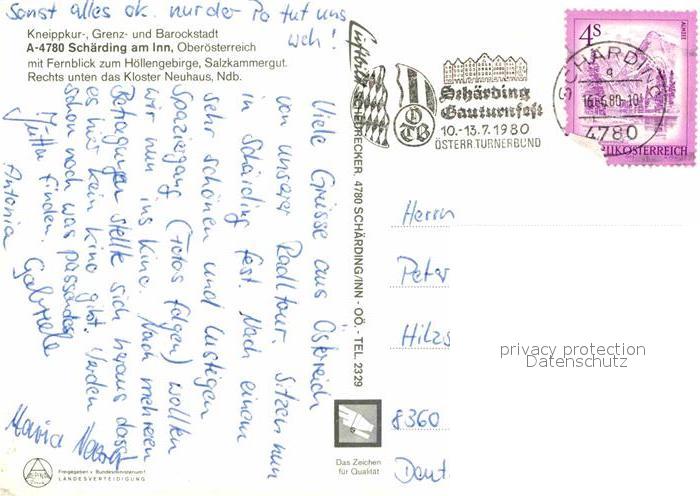 Sonst alles ok. nur der Po tut uns
weh!
Kneippkur-, Grenz- und Barockstadt
A-4780 Schärding am Inn, Oberösterreich
mit Fernblick zum Höllengebirge, Salzkammergut.
Rechts unten das Kloster Neuhaus, Ndb.
Viele Grüsse aus Österreich
von unserer Radltour. Sitzen nun
in Schärding fest. Nach einem
sehr schönen und lustigen
Spaziergang (Fotos folgen) wollten
wir nun ins Kino. Nach mehreren
Befragungen stellte sich heraus dass
es hier kein Kino gibt. Werden
schon noch was passendes
finden. Gabriele
Jutta
Antonia
Maria
Freigegeben v. Bundesministerium f.
LANDESVERTEIDIGUNG
Luftbild SCHEURECKER, 4780 SCHÄRDING/INN - OÖ. - TEL. 2329
Das Zeichen
für Qualität
Schärding
Gauturnfest
10.-13.7.1980
ÖSTERR. TURNERBUND
SCHÄRDING
4780
4S
REPUBLIK ÖSTERREICH
Herrn
Peter
Hilzs
8360
Deut
privacy protection
Datenschutz